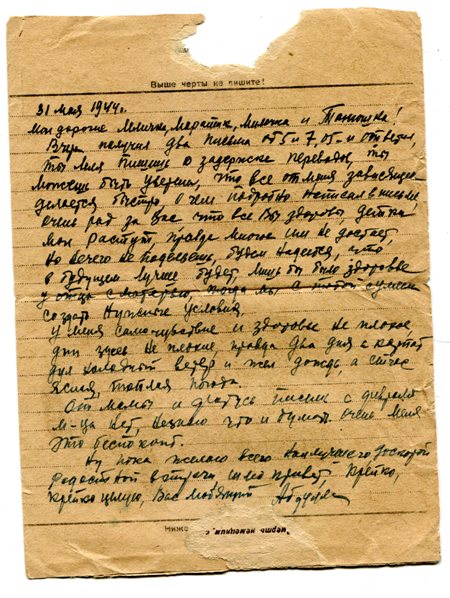 Выше черты не пишите!
31 мая 1944г.
Мои дорогие Лялечка, Маратик, Милочка и Танюшка!
Вчера получил два письма от 5 и 7.05. и ответил,
ты Ляля пишешь о задержке перевода, ты
можешь быть уверена, что все от меня зависящее
делается быстро, о чем подробно написал в письме
очень рад за Вас что все Вы здоровы, детки
мои растут, правда многое им не достает,
но нечего не поделаешь, будем надеятся, что
в будущем лучше будет, лишь бы были здоровье
у отца с матерью, тогда мы с тобой сумеем
создать нужные условия.
у меня самочувствие и здоровье не плохое,
дни здесь не плохие, правда два дня с
дул холодный ветер и шел дождь, а сейчас
ясная, теплая погода.
От мамы и писем с февраля
м-ца нет, незнаю что и думать. очень меня
это беспокоит.
Ну пока желаю всего наилучшего скорой
радостной встречи, шлю привет, Крепко,
крепко целую, Вас любящий Абдулла
Ниже
смерть немецким